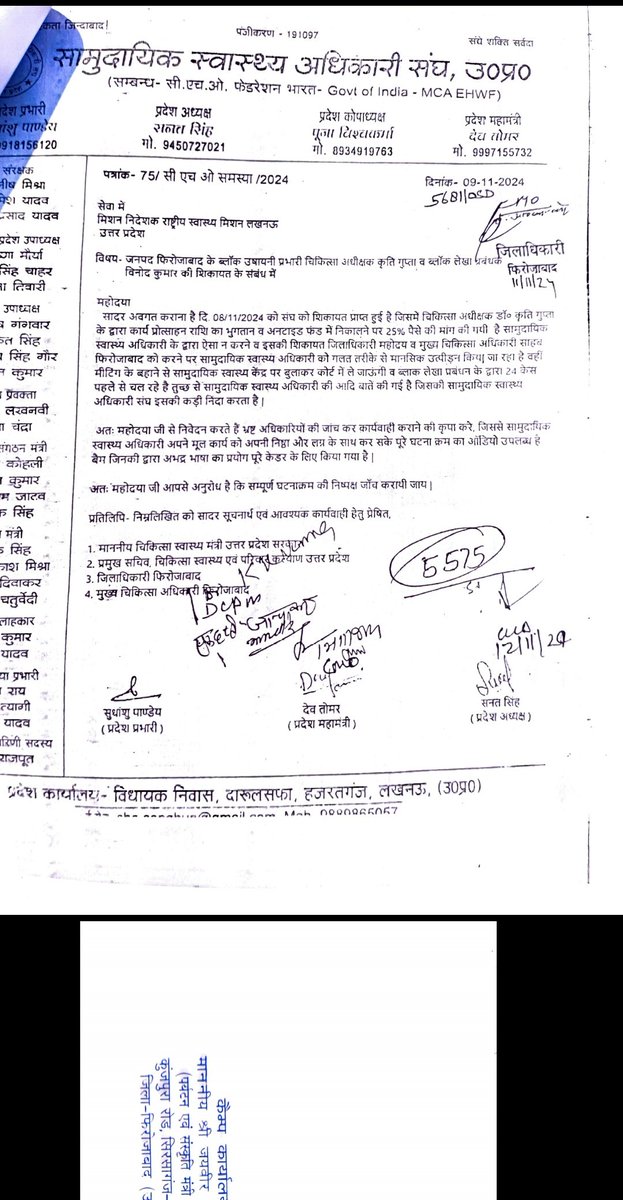 कता जिन्दाबाद!
पंजीकरण - 191097
संघे शक्ति सर्वदा
सामुदायिक स्वास्थ्य अधिकारी संघ, उ0प्र0
(सम्बन्ध- सी.एच.ओ. फेडरेशन भारत- Govt of India - MCA EHWF)
प्रदेश अध्यक्ष
सनत सिंह
मो. 9450727021
प्रदेश कोपाध्यक्ष
पूजा विश्वकर्मा
मो. 8934919763
प्रदेश महामंत्री
देव तोमर
मो. 9997155732
देश प्रभारी
शु पाण्डेय
9918156120
संरक्षक
नीष मिश्रा
मेश यादव
प्रसाद यादव
प्रदेश उपाध्यक्ष
णा मौर्या
सिंह चाहर
ा तिवारी
उपाध्यक्ष
गंगवार
कत सिंह
सिंह गौर
न कुमार
प्रवक्ता
लखनवी
चंद्रा
संगठन मंत्री
कोहली
कुमार
म जाटव
क सिंह
मंत्री
क सिंह
काश मिश्रा
दिवाकर
चतुर्वेदी
लाहकार
कुमार
यादव
या प्रभारी
राय
त्यागी
यादव
ारिणी सदस्य
राजपूत
पत्रांक- 75/ सी एच ओ समस्या /2024
दिनांक- 09-11-2024
5681/OSD
सेवा में
मिशन निदेशक राष्ट्रीय स्वास्थ्य मिशन लखनऊ
उत्तर प्रदेश
जिलाधिकारी
फिरोजाबाद
11/11/24
विषय- जनपद फिरोजाबाद के ब्लॉक उधायनी प्रभारी चिकित्सा अधीक्षक कृति गुप्ता व ब्लॉक लेखा प्रबंधक
विनोद कुमार की शिकायत के संबंध में
महोदया
सादर अवगत कराना है दि. 08/11/2024 को संघ को शिकायत प्राप्त हुई है जिसमें चिकित्सा अधीक्षक डॉ० कृति गुप्ता
के द्वारा कार्य प्रोत्साहन राशि का भुगतान व अनटाइड फंड में निकालने पर 25% पैसे की मांग की गयी है सामुदायिक
स्वास्थ्य अधिकारी के द्वारा ऐसा न करने व इसकी शिकायत जिलाधिकारी महोदय व मुख्य चिकित्सा अधिकारी साहब
फिरोजाबाद को करने पर सामुदायिक स्वास्थ्य अधिकारी को गलत तरीके से मानसिक उत्पीड़न किया जा रहा है वहीं
मीटिंग के बहाने से सामुदायिक स्वास्थ्य केंद्र पर बुलाकर कोर्ट में ले जाऊंगी व ब्लाक लेखा प्रबंधन के द्वारा 24 केस
पहले से चल रहे है तुच्छ से सामुदायिक स्वास्थ्य अधिकारी की आदि बाते की गई है जिसकी सामुदायिक स्वास्थ्य
अधिकारी संघ इसकी कड़ी निंदा करता है |
अतः महोदया जी से निवेदन करते हैं भ्रष्ट अधिकारियों की जांच कर कार्यवाही कराने की कृपा करे, जिससे सामुदायिक
स्वास्थ्य अधिकारी अपने मूल कार्य को अपनी निष्ठा और लग्न के साथ कर सके पूरे घटना क्रम का ऑडियो उपलब्ध है
बैम जिनकी द्वारा अभद्र भाषा का प्रयोग पूरे कैडर के लिए किया गया है |
अतः महोदया जी आपसे अनुरोध है कि सम्पूर्ण घटनाक्रम की निष्पक्ष जाँच करायी जाय |
प्रतिलिपि- निम्नलिखित को सादर सूचनार्थ एवं आवश्यक कार्यवाही हेतु प्रेषित,
1. माननीय चिकित्सा स्वास्थ्य मंत्री उत्तर प्रदेश सरकार
2. प्रमुख सचिव, चिकित्सा स्वास्थ्य एवं परिवार कल्याण उत्तर प्रदेश
3. जिलाधिकारी फिरोजाबाद
4. मुख्य चिकित्सा अधिकारी फिरोजाबाद
5575
DCPM
12/11/24
सुधांशु पाण्डेय
( प्रदेश प्रभारी )
देव तोमर
( प्रदेश महामंत्री )
सनत सिंह
( प्रदेश अध्यक्ष )
प्रदेश कार्यालय:- विधायक निवास, दारूलसफा, हजरतगंज, लखनऊ, (उ0प्र0)
कैम्प कार्याल
माननीय श्री जयवीर
(पर्यटन एवं संस्कृति मंत्री
कुंजपुरा रोड, सिरसागंज-
जिला-फिरोजाबाद (उ